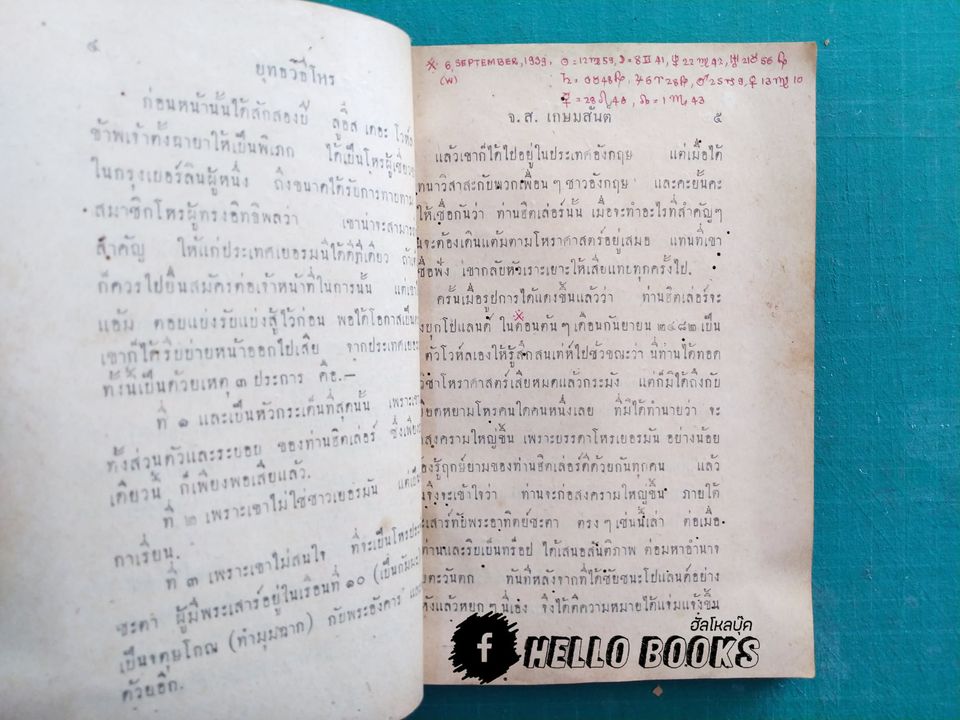 ๔
ยุทธวิธีโหร
ก่อนหน้านั้นได้สักสองปี ลูอิส เดอะ โวห์ล
ข้าพเจ้าตั้งฉายาให้เป็นพิเภก ได้เป็นโหรผู้เชี่ยวช
ในกรุงเยอร์ลินผู้หนึ่ง ถึงขนาดได้รับการทาบทาม
สมาชิกโหรผู้ทรงอิทธิพลว่า เขาน่าจะสามารถ
สำคัญ ให้แก่ประเทศเยอรมนีได้ดีทีเดียว ถ้า
ก็ควรไปยื่นสมัครต่อเจ้าหน้าที่ในการนั้น แต่เขา
แอ้ม ตอบแบ่งรับแบ่งสู้ไว้ก่อน พอได้โอกาสเป็น
เขาก็ได้รีบบ่ายหน้าออกไปเสีย จากประเทศเยอ
ทั้งนี้เป็นด้วยเหตุ ๓ ประการ คือ.—
ที่ ๑ และเป็นหัวกระเด็นที่สุดนั้น เพราะเขา
ทั้งส่วนตัวและระบอบ ของท่านฮิตเล่อร์ ซึ่งเพียง
เดียวนี้ ก็เพียงพอเสียแล้ว.
ที่ ๒ เพราะเขาไม่ใช่ชาวเยอรมัน
กาเรียน.
ที่ ๓ เพราะเขาไม่สนใจ ที่จะเป็นโหรประ
ชะตา ผู้มีพระเสาร์อยู่ในเรือนที่ ๑๐ (เป็นกัมมะ)
เป็นจตุษโกณ (ทำมุมฉาก) กับพระอังคาร
ด้วยอีก.
※ 6 SEPTEMBER, 1939, ☉=12♍59, ☽=8♊41, ☿22♌42, ♅21♉56 ℞
(W)
จ. ส. เกษมสันต์ ๕
แล้วเขาก็ได้ไปอยู่ในประเทศอังกฤษ แต่เมื่อได้
ทนาวิสาสะกับพวกเพื่อน ๆ ชาวอังกฤษ และคะยั้นคะ
ให้เชื่อกันว่า ท่านฮิตเล่อร์นั้น เมื่อจะทำอะไรที่สำคัญๆ
นจะต้องเดินแต้มตามโหราศาสตร์อยู่เสมอ แทนที่เขา
ชื่อฟัง เขากลับหัวเราะเยาะให้เสียแทบทุกครั้งไป.
ครั้นเมื่อรูปการได้แดงขึ้นแล้วว่า ท่านฮิตเล่อร์จะ
งบุกโปแลนด์ ในตอนต้น ๆ เดือนกันยายน ๒๔๘๒ เป็น
ตัวโวห์ลเองให้รู้สึกสนเท่ห์ไปชั่วขณะว่า นี่ท่านได้ทอด
วิชาโหราศาสตร์เสียหมดแล้วกระมัง แต่ก็มิได้ถึงกับ
ยียดหยามโหรคนใดคนหนึ่งเลย ที่มิได้ทำนายว่า จะ
ดสงครามใหญ่ขึ้น เพราะบรรดาโหรเยอรมัน อย่างน้อย
องรู้ฤกษ์ยามของท่านฮิตเล่อร์ดีด้วยกันทุกคน แล้ว
นจึงจะเข้าใจว่า ท่านจะก่อสงครามใหญ่ขึ้น ภายใต้
ะเสาร์ทับพระอาทิตย์ชะตา ตรง ๆ เช่นนี้เล่า ต่อเมื่อ
ท่านและริบเบ็นทร็อป ได้เสนอสันติภาพ ต่อมหาอำนาจ
ยตะวันตก ทันทีหลังจากที่ได้ชัยชนะโปแลนด์อย่าง
หังแล้วหยก ๆ นี้เอง จึงได้ตีความหมายได้แจ่มแจ้งขึ้น
ฮัลโหลบุ๊ค
f HELLO BOOKS